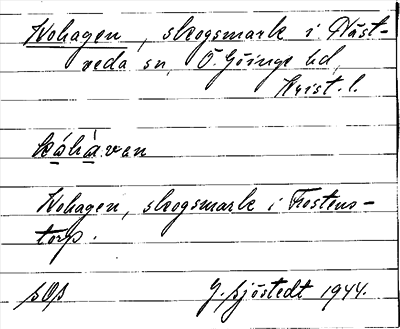 Kohagen, skogsmark i Näst-
veda sn, Ö. Göinge hd,
Krist. l.
kåhàvan
Kohagen, skogsmark i Frostens-
torp.
G. Sjöstedt 1944.